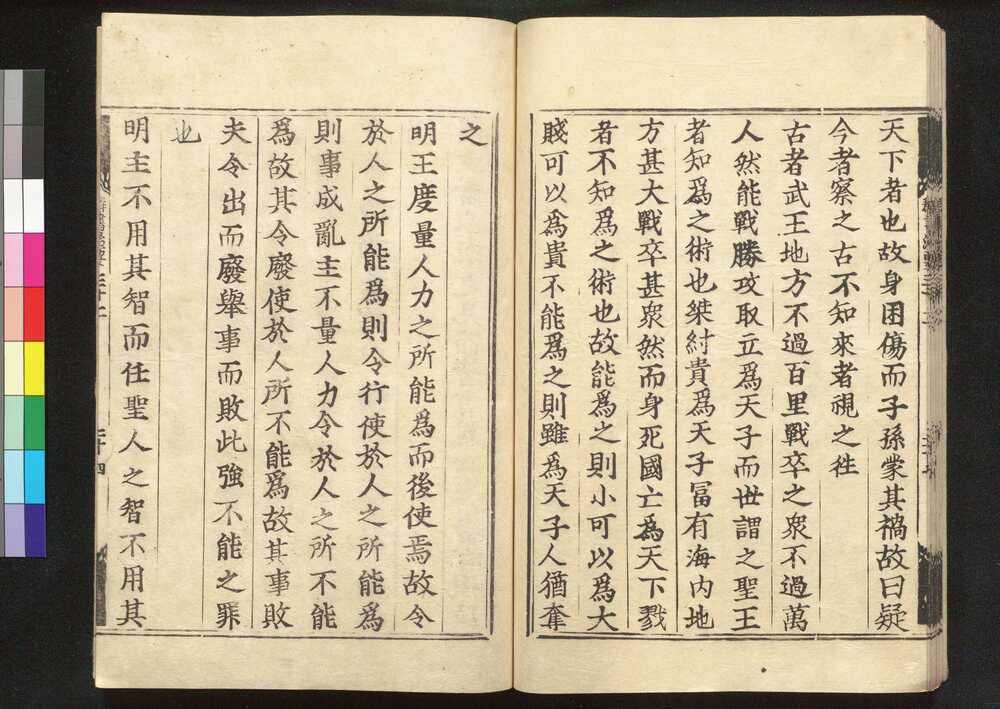 天下者也故身困傷而子孫蒙其禍故曰疑
今者察之古不知來者視之徃
古者武王地方不過百里戰卒之衆不過萬
人然能戰勝攻取立爲天子而世謂之聖王
者知爲之術也桀紂貴爲天子冨有海内地
方甚大戰卒甚衆然而身死國亡爲天下戮
者不知爲之術也故能爲之則小可以爲大
賤可以爲貴不能爲之則雖爲天子人猶奪
之
明王度量人力之所能爲而後使焉故令
於人之所能爲則令行使於人之所能爲
則事成亂主不量人力令於人之所不能
爲故其令廢使於人所不能爲故其事敗
夫令出而廢舉事而敗此強不能之罪
也
明主不用其智而任聖人之智不用其
群書治要三十二
三十四